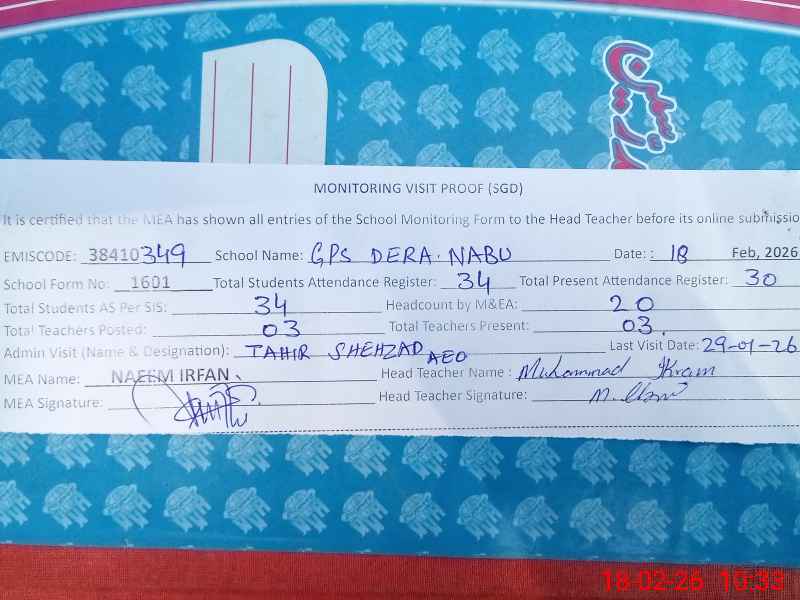 MONITORING VISIT PROOF (SGD)
It is certified that the MEA has shown all entries of the School Monitoring Form to the Head Teacher before its online submissio
EMISCODE: 38410349 School Name: GPS DERA NABU Date: : 18 Feb, 2026
School Form No: 1601 Total Students Attendance Register: 34 Total Present Attendance Register: 30
Total Students AS Per SIS: 34 Headcount by M&EA: 20
Total Teachers Posted: 03 Total Teachers Present: 03.
Admin Visit (Name & Designation): TAHIR SHEHZAD AEO Last Visit Date: 29-01-26
MEA Name: NAEEM IRFAN Head Teacher Name : Muhammad Ikram
MEA Signature: Head Teacher Signature:
18-02-26 10:33